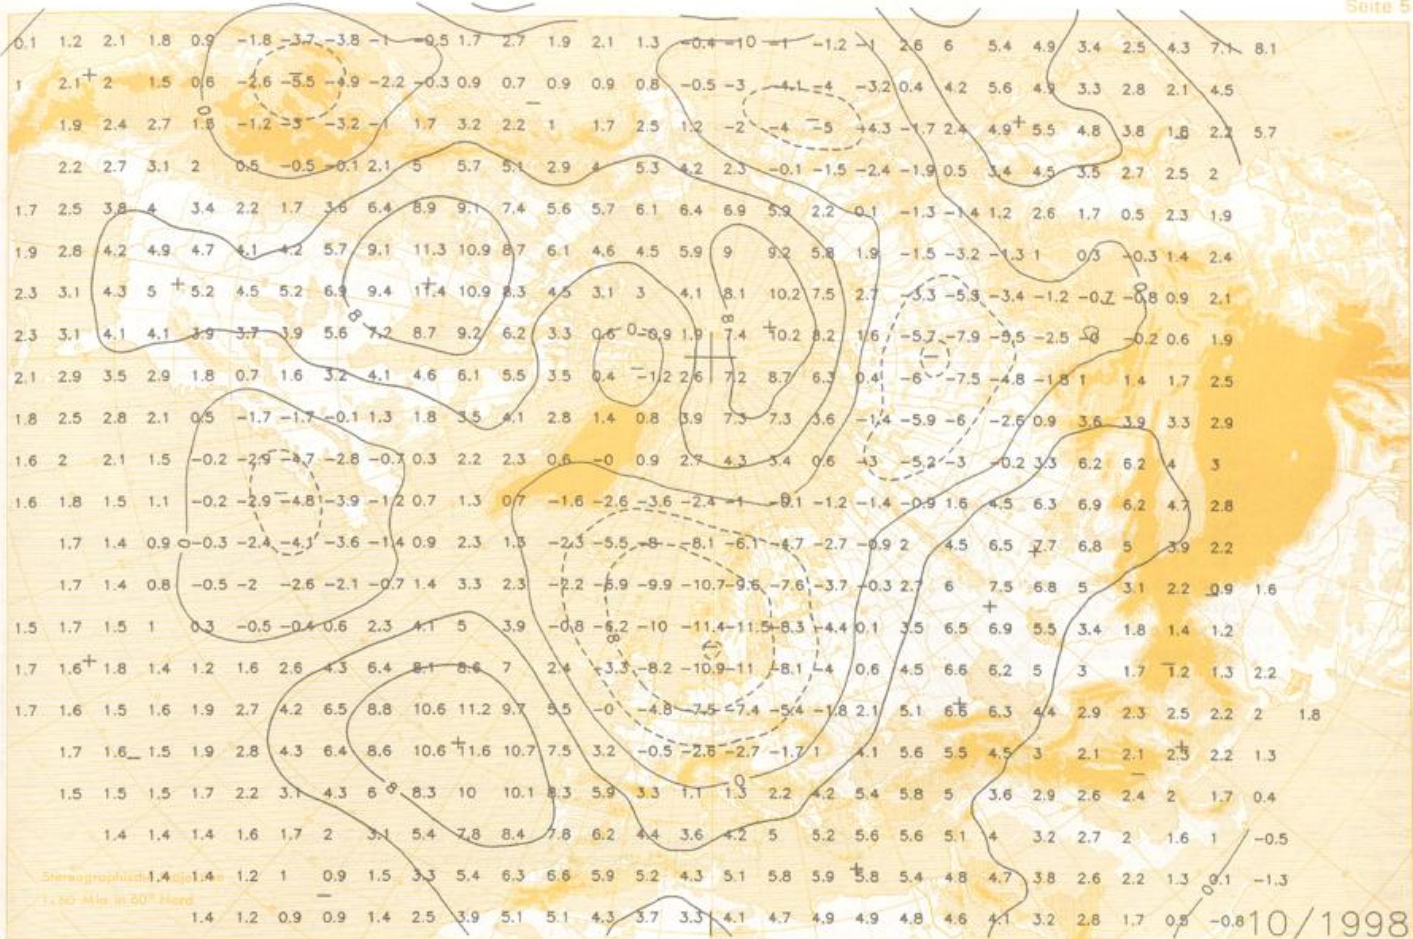 Seite 5
0.1 1.2 2.1 1.8 0.9 -1.8 -3.7 -3.8 -1 -0.5 1.7 2.7 1.9 2.1 1.3 -0.4 -10 -1 -1.2 -1 2.6 6 5.4 4.9 3.4 2.5 4.3 7.1 8.1
1 2.1 2 1.5 0.6 -2.6 -5.5 -4.9 -2.2 -0.3 0.9 0.7 0.9 0.9 0.8 -0.5 -3 -4.1 -4 -3.2 0.4 4.2 5.6 4.9 3.3 2.8 2.1 4.5
1.9 2.4 2.7 1.5 -1.2 -3 -3.2 -1 1.7 3.2 2.2 1 1.7 2.5 1.2 -2 -4 -5 -4.3 -1.7 2.4 4.9 5.5 4.8 3.8 1.8 2.2 5.7
2.2 2.7 3.1 2 0.5 -0.5 -0.1 2.1 5 5.7 5.1 2.9 4 5.3 4.2 2.3 -0.1 -1.5 -2.4 -1.9 0.5 3.4 4.5 3.5 2.7 2.5 2
1.7 2.5 3.8 4 3.4 2.2 1.7 3.6 6.4 8.9 9.1 7.4 5.6 5.7 6.1 6.4 6.9 5.9 2.2 0.1 -1.3 -1.4 1.2 2.6 1.7 0.5 2.3 1.9
1.9 2.8 4.2 4.9 4.7 4.1 4.2 5.7 9.1 11.3 10.9 8.7 6.1 4.6 4.5 5.9 9 9.2 5.8 1.9 -1.5 -3.2 -1.3 1 0.3 -0.3 1.4 2.4
2.3 3.1 4.3 5 5.2 4.5 5.2 6.9 9.4 11.4 10.9 8.3 4.5 3.1 3 4.1 8.1 10.2 7.5 2.7 -3.3 -5.3 -3.4 -1.2 -0.7 -0.8 0.9 2.1
2.3 3.1 4.1 4.1 3.9 3.7 3.9 5.6 7.2 8.7 9.2 6.2 3.3 0.6 0 -0.9 1.9 7.4 10.2 8.2 1.6 -5.7 -7.9 -5.5 -2.5 -0 -0.2 0.6 1.9
2.1 2.9 3.5 2.9 1.8 0.7 1.6 3.2 4.1 4.6 6.1 5.5 3.5 0.4 -1.2 2.6 7.2 8.7 6.3 0.4 -6 -7.5 -4.8 -1.8 1 1.4 1.7 2.5
1.8 2.5 2.8 2.1 0.5 -1.7 -1.7 -0.1 1.3 1.8 3.5 4.1 2.8 1.4 0.8 3.9 7.3 7.3 3.6 -1.4 -5.9 -6 -2.6 0.9 3.6 3.9 3.3 2.9
1.6 2 2.1 1.5 -0.2 -2.9 -4.7 -2.8 -0.7 0.3 2.2 2.3 0.6 -0 0.9 2.7 4.3 3.4 0.6 -3 -5.2 -3 -0.2 3.3 6.2 6.2 4 3
1.6 1.8 1.5 1.1 -0.2 -2.9 -4.8 -3.9 -1.2 0.7 1.3 0.7 -1.6 -2.6 -3.6 -2.4 -1 -0.1 -1.2 -1.4 -0.9 1.6 4.5 6.3 6.9 6.2 4.7 2.8
1.7 1.4 0.9 -0.3 -2.4 -4.1 -3.6 -1.4 0.9 2.3 1.3 -2.3 -5.5 -8 -8.1 -6.1 -4.7 -2.7 -0.9 2 4.5 6.5 7.7 6.8 5 3.9 2.2
1.7 1.4 0.8 -0.5 -2 -2.6 -2.1 -0.7 1.4 3.3 2.3 -2.2 -6.9 -9.9 -10.7 -9.6 -7.6 -3.7 -0.3 2.7 6 7.5 6.8 5 3.1 2.2 0.9 1.6
1.5 1.7 1.5 1 0.3 -0.5 -0.4 0.6 2.3 4.1 5 3.9 -0.8 -6.2 -10 -11.4 -11.5 -8.3 -4.4 0.1 3.5 6.5 6.9 5.5 3.4 1.8 1.4 1.2
1.7 1.6 1.8 1.4 1.2 1.6 2.6 4.3 6.4 8.1 8.6 7 2.4 -3.3 -8.2 -10.9 -11 -8.1 -4 0.6 4.5 6.6 6.2 5 3 1.7 1.2 1.3 2.2
1.7 1.6 1.5 1.6 1.9 2.7 4.2 6.5 8.8 10.6 11.2 9.7 5.5 -0 -4.8 -7.5 -7.4 -5.4 -1.8 2.1 5.1 6.6 6.3 4.4 2.9 2.3 2.5 2.2 2 1.8
1.7 1.6 1.5 1.9 2.8 4.3 6.4 8.6 10.6 11.6 10.7 7.5 3.2 -0.5 -2.6 -2.7 -1.7 1 4.1 5.6 5.5 4.5 3 2.1 2.1 2.3 2.2 1.3
1.5 1.5 1.5 1.7 2.2 3.1 4.3 6 8 8.3 10 10.1 8.3 5.9 3.3 1.1 1.3 2.2 4.2 5.4 5.8 5 3.6 2.9 2.6 2.4 2 1.7 0.4
1.4 1.4 1.4 1.6 1.7 2 3.1 5.4 7.8 8.4 7.8 6.2 4.4 3.6 4.2 5 5.2 5.6 5.6 5.1 4 3.2 2.7 2 1.6 1 -0.5
1.4 1.4 1.2 1 0.9 1.5 3.3 5.4 6.3 6.6 5.9 5.2 4.3 5.1 5.8 5.9 5.8 5.4 4.8 4.7 3.8 2.6 2.2 1.3 0.1 -1.3
1.4 1.2 0.9 0.9 1.4 2.5 3.9 5.1 5.1 4.3 3.7 3.3 4.1 4.7 4.9 4.9 4.8 4.6 4.1 3.2 2.8 1.7 0.8 -0.8
10/1998